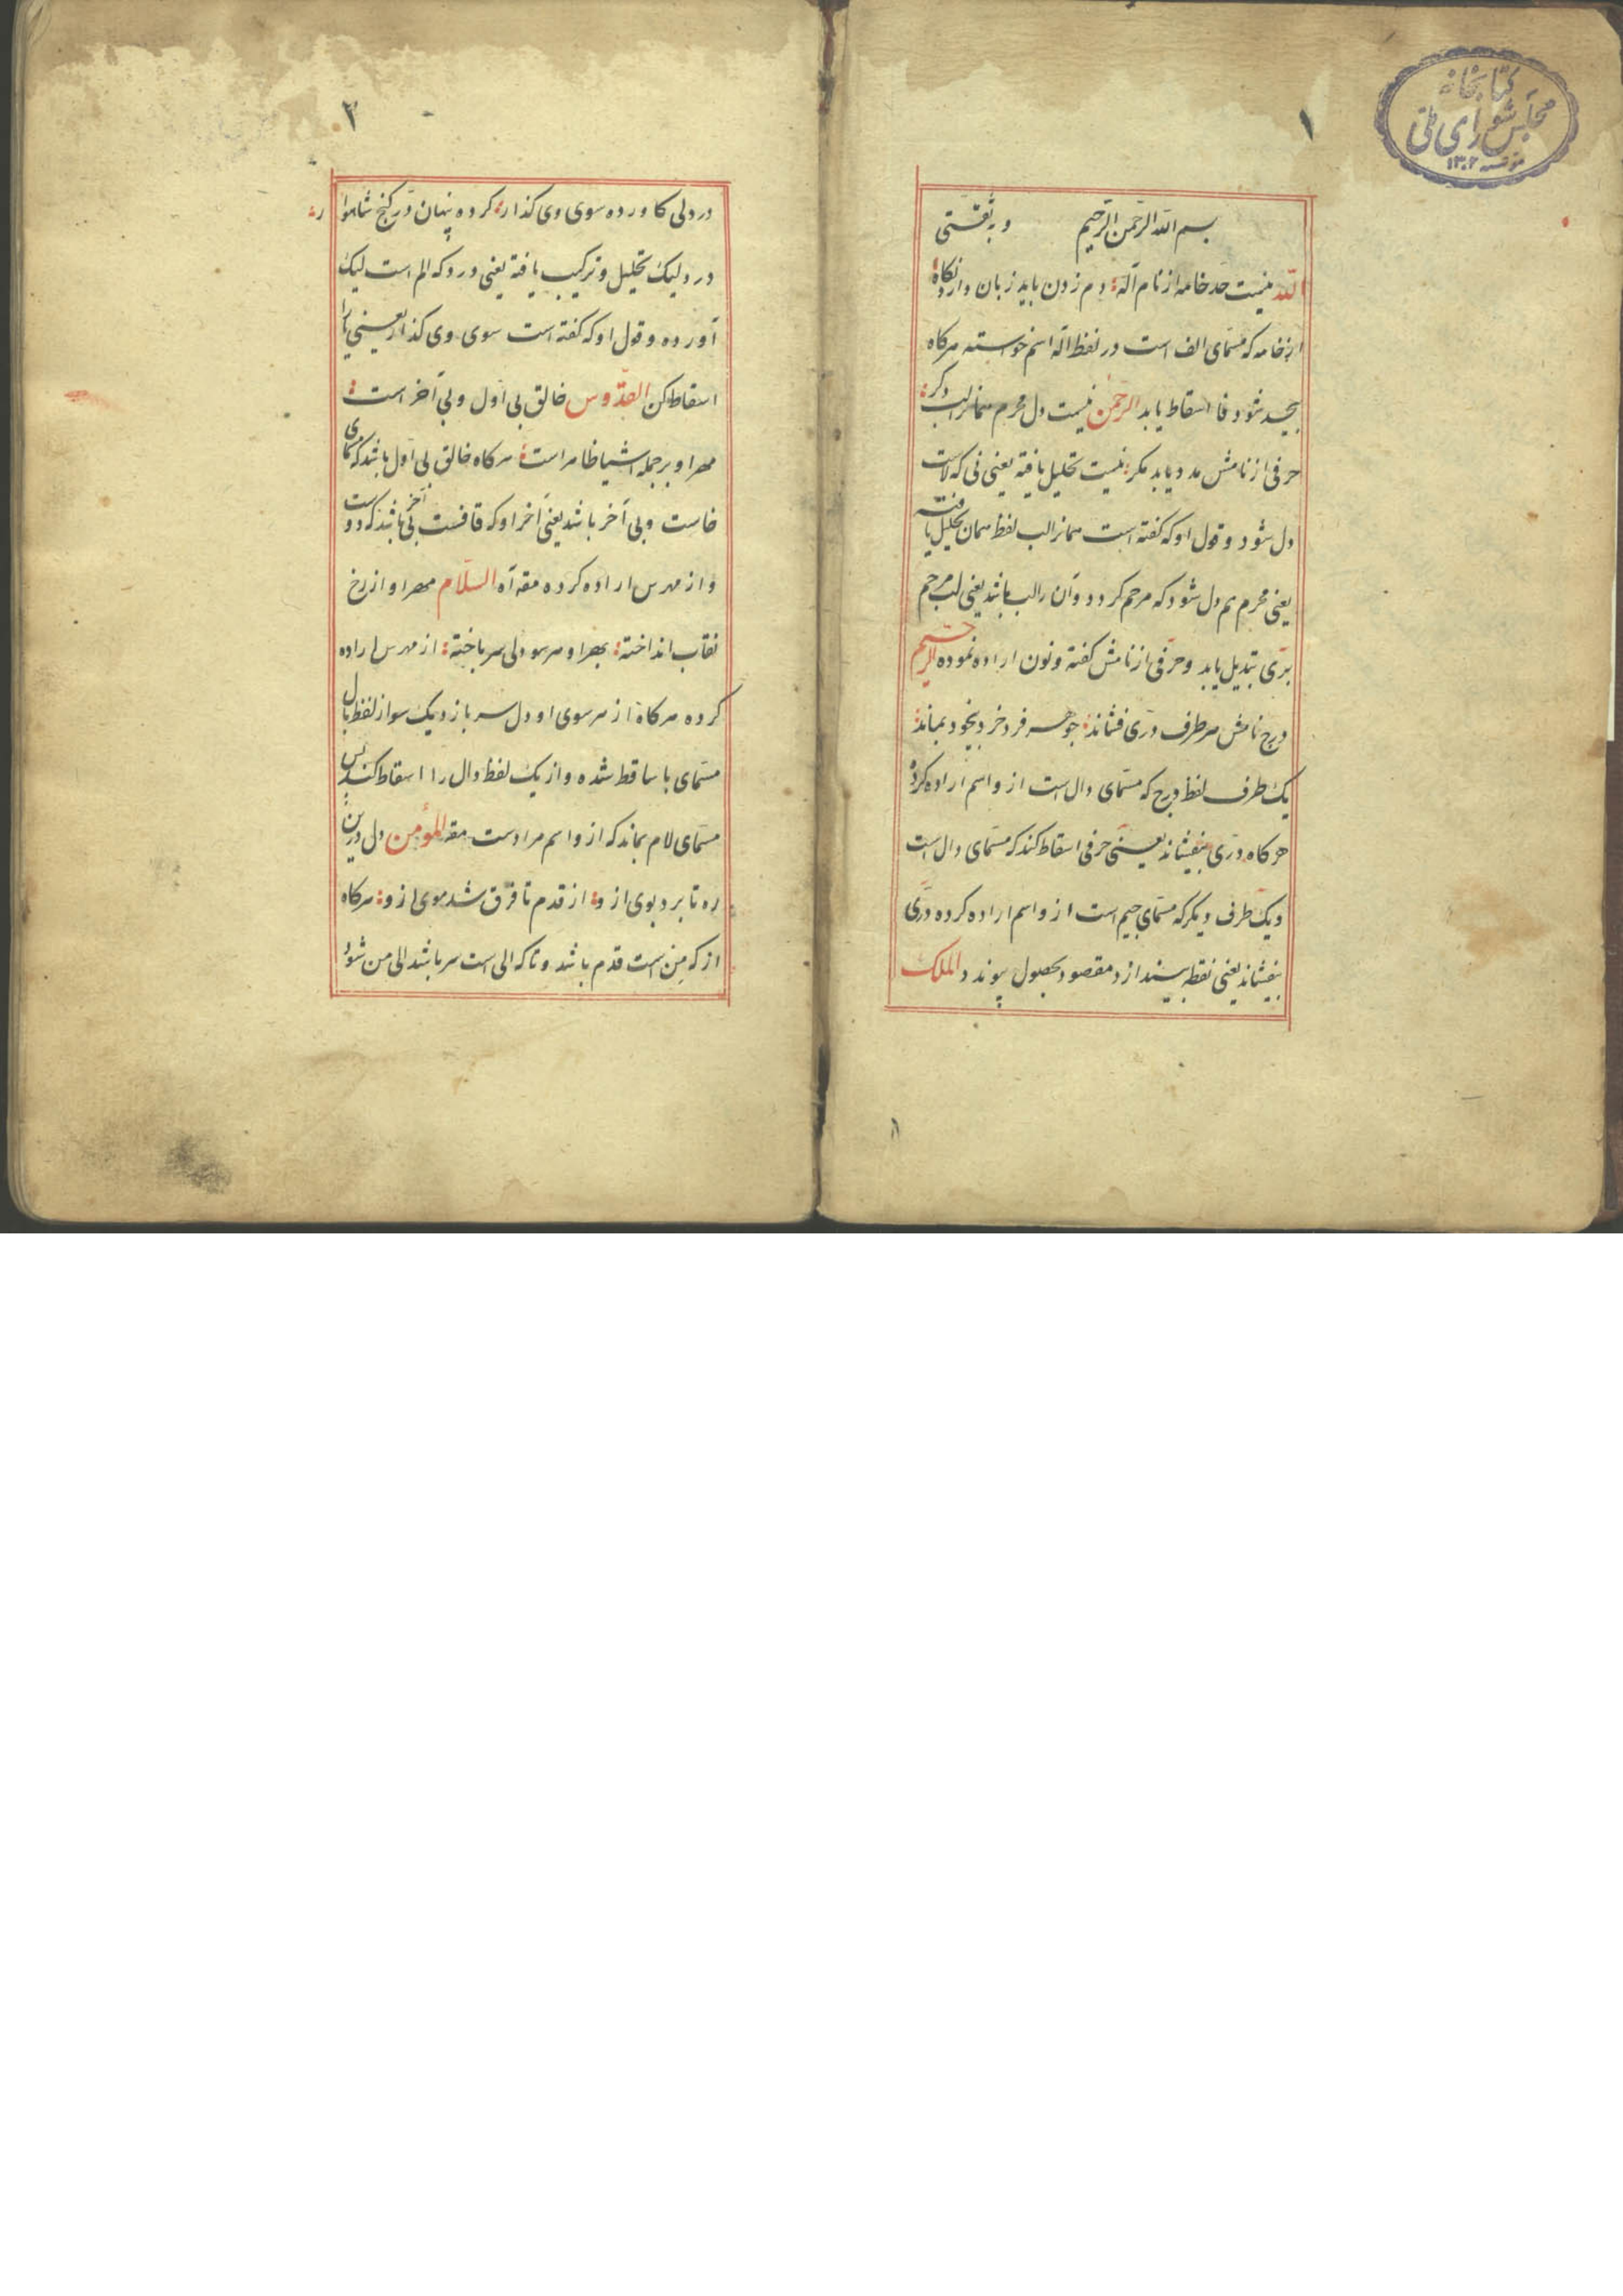 کتابخانه
مجلس شورای ملی
مؤسسه ۱۳۰۲
۱
بسم الله الرحمن الرحیم وبه ثقتی
الله نیست حد خامه از نام اله دم زدن باید زبان دارد نگاه
از خامه که مسمای الف است در لفظ اله اسم خواسته هرکاه
بیحد شود فا اسقاط یابد الرحمن نیست دل محرم همانرالب دکر
حرفی از نامش مدد یابد مکر نیست تحلیل یافته یعنی نی که لاست
دل شود و قول او که کفته است همانرالب لفظ همان تحلیل یافته
یعنی محرم هم دل شود که مرحم کردد وآن رالب باشد یعنی لب مرحم
بری تبدیل یابد وحرفی از نامش کفته ونون اراده نموده الرحیم
درج نامش هرطرف دری فشاند جوهر فرد خرد بیخود بماند
یک طرف لفظ درج که مسمای دال است از واسم اراده کرده
هرکاه دری بیفشاند یعنی حرفی اسقاط کند که مسمای دال است
ویک طرف دیکر که مسمای جیم است از واسم اراده کرده دری
بیفشاند یعنی نقطه بیندازد مقصود بحصول پیوندد الملک
۲
در دلی کاورده سوی وی کذار کرده پنهان در کنج شاهوار
درد لیک تحلیل وترکیب یافته یعنی درد که الم است لیک
آورده وقول او که کفته است سوی وی کذار یعنی یا را
اسقاط کن القدوس خالق بی اول وبی آخر است
مهر او بر جمله اشیا ظاهر است هرکاه خالق بی اول باشد که مسمای
خاست وبی آخر باشد یعنی آخر او که قافست بی آخر باشد که دوست
واز مهر س اراده کرده مقه آه السلام مهر او از رخ
نقاب انداخته بهر او هر سو دلی سر باخته از مهر س اراده
کرده هرکاه از هر سوی او دل سر بازد یک سو از لفظ بال
مسمای با ساقط شده واز یک لفظ دال را اسقاط کند پس
مسمای لام بماند که از واسم مرادست مقه المؤمن دل درین
ره تا برد بوی از و از قدم تا فرق شد موی از و هرکاه
از که من است قدم باشد وتا که الی است سر باشد الی من شود